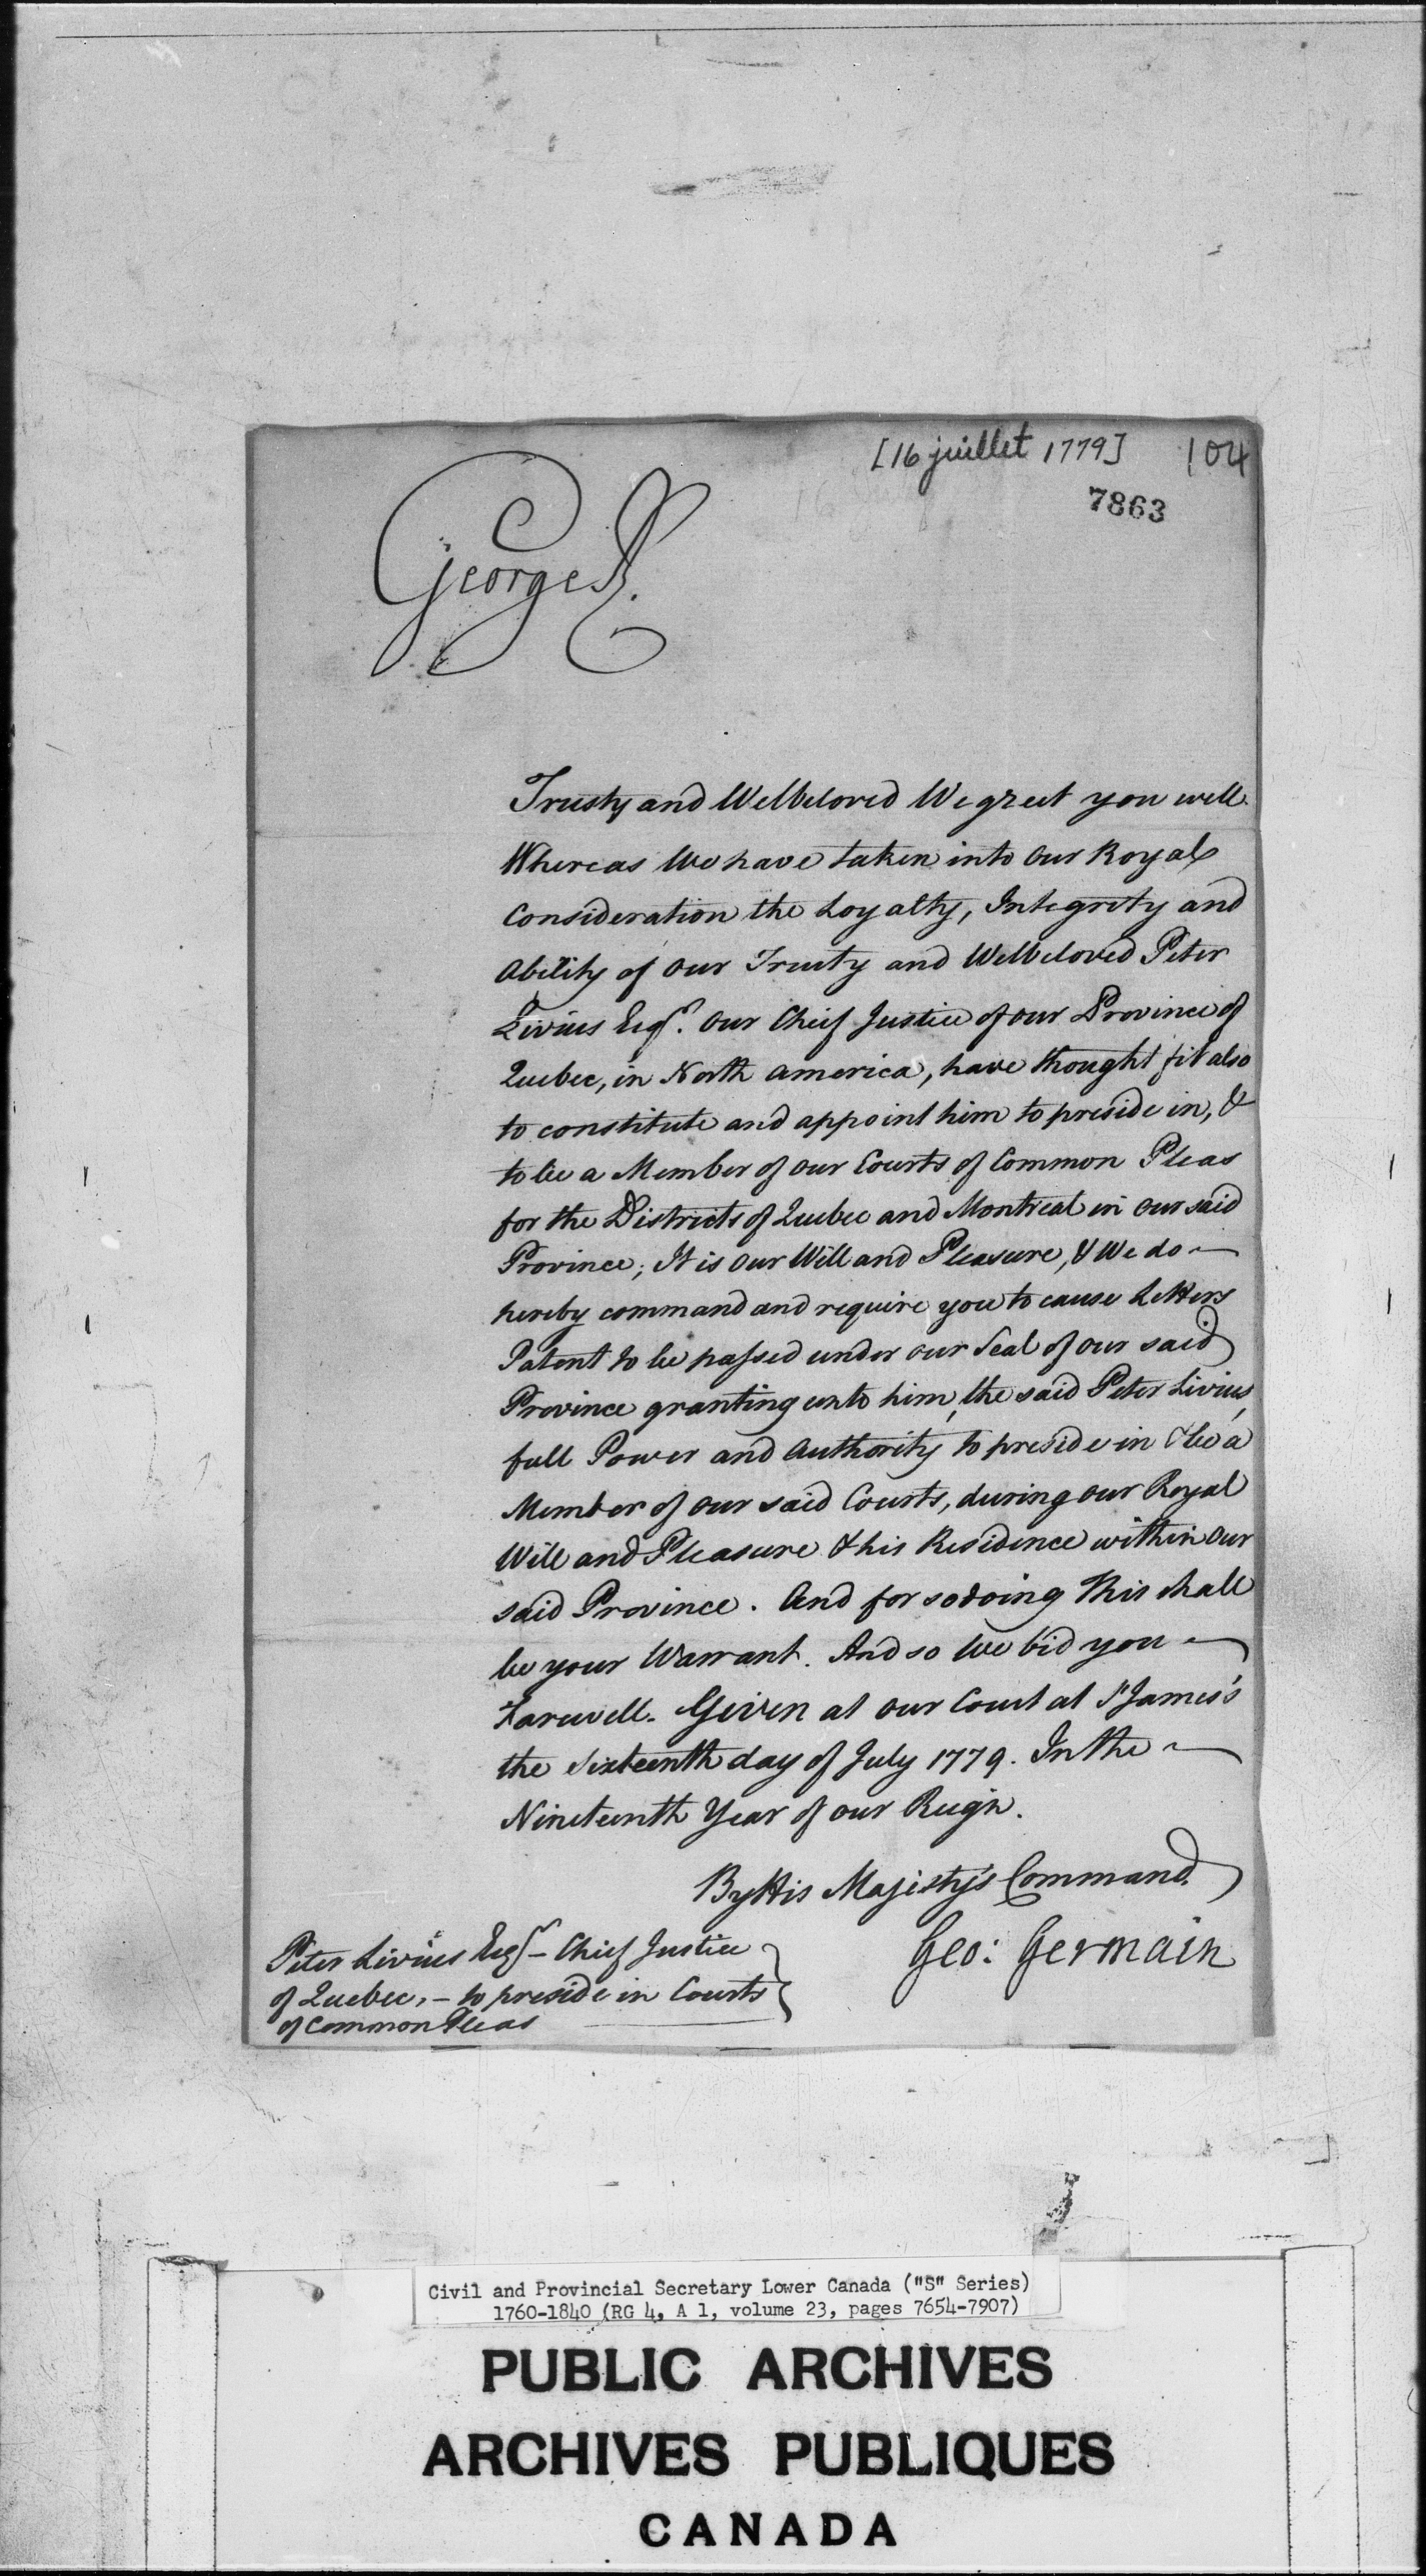 [16 juillet 1779] 104
7863
George R.
Trusty and Wellbeloved We greet you well.
Whereas We have taken into Our Royal
Consideration the Loyalty, Integrity and
Ability of Our Trusty and Wellbeloved Peter
Livius Esqr. Our Cheif Justice of our Province of
Quebec, in North America, have thought fit also
to constitute and appoint him to preside in, &
to be a Member of our Courts of Common Pleas
for the Districts of Quebec and Montreal in Our said
Province; It is Our Will and Pleasure, & We do —
hereby command and require you to cause Letters
Patent to be passed under our Seal of Our said
Province granting unto him, the said Peter Livius,
full Power and Authority to preside in & be a
Member of Our said Courts, during Our Royal
Will and Pleasure & his Residence within Our
said Province. And for so doing This shall
be your Warrant. And so We bid you —
Farewell. Given at Our Court at St James's
the Sixteenth day of July 1779. In the —
Nineteenth Year of our Reign.
By His Majesty's Command.
Geo: Germain
Peter Livius Esqr — Chief Justice
of Quebec, — to preside in Courts
of Common Pleas
Civil and Provincial Secretary Lower Canada ("S" Series)
1760-1840 (RG 4, A 1, volume 23, pages 7654-7907)
PUBLIC ARCHIVES
ARCHIVES PUBLIQUES
CANADA